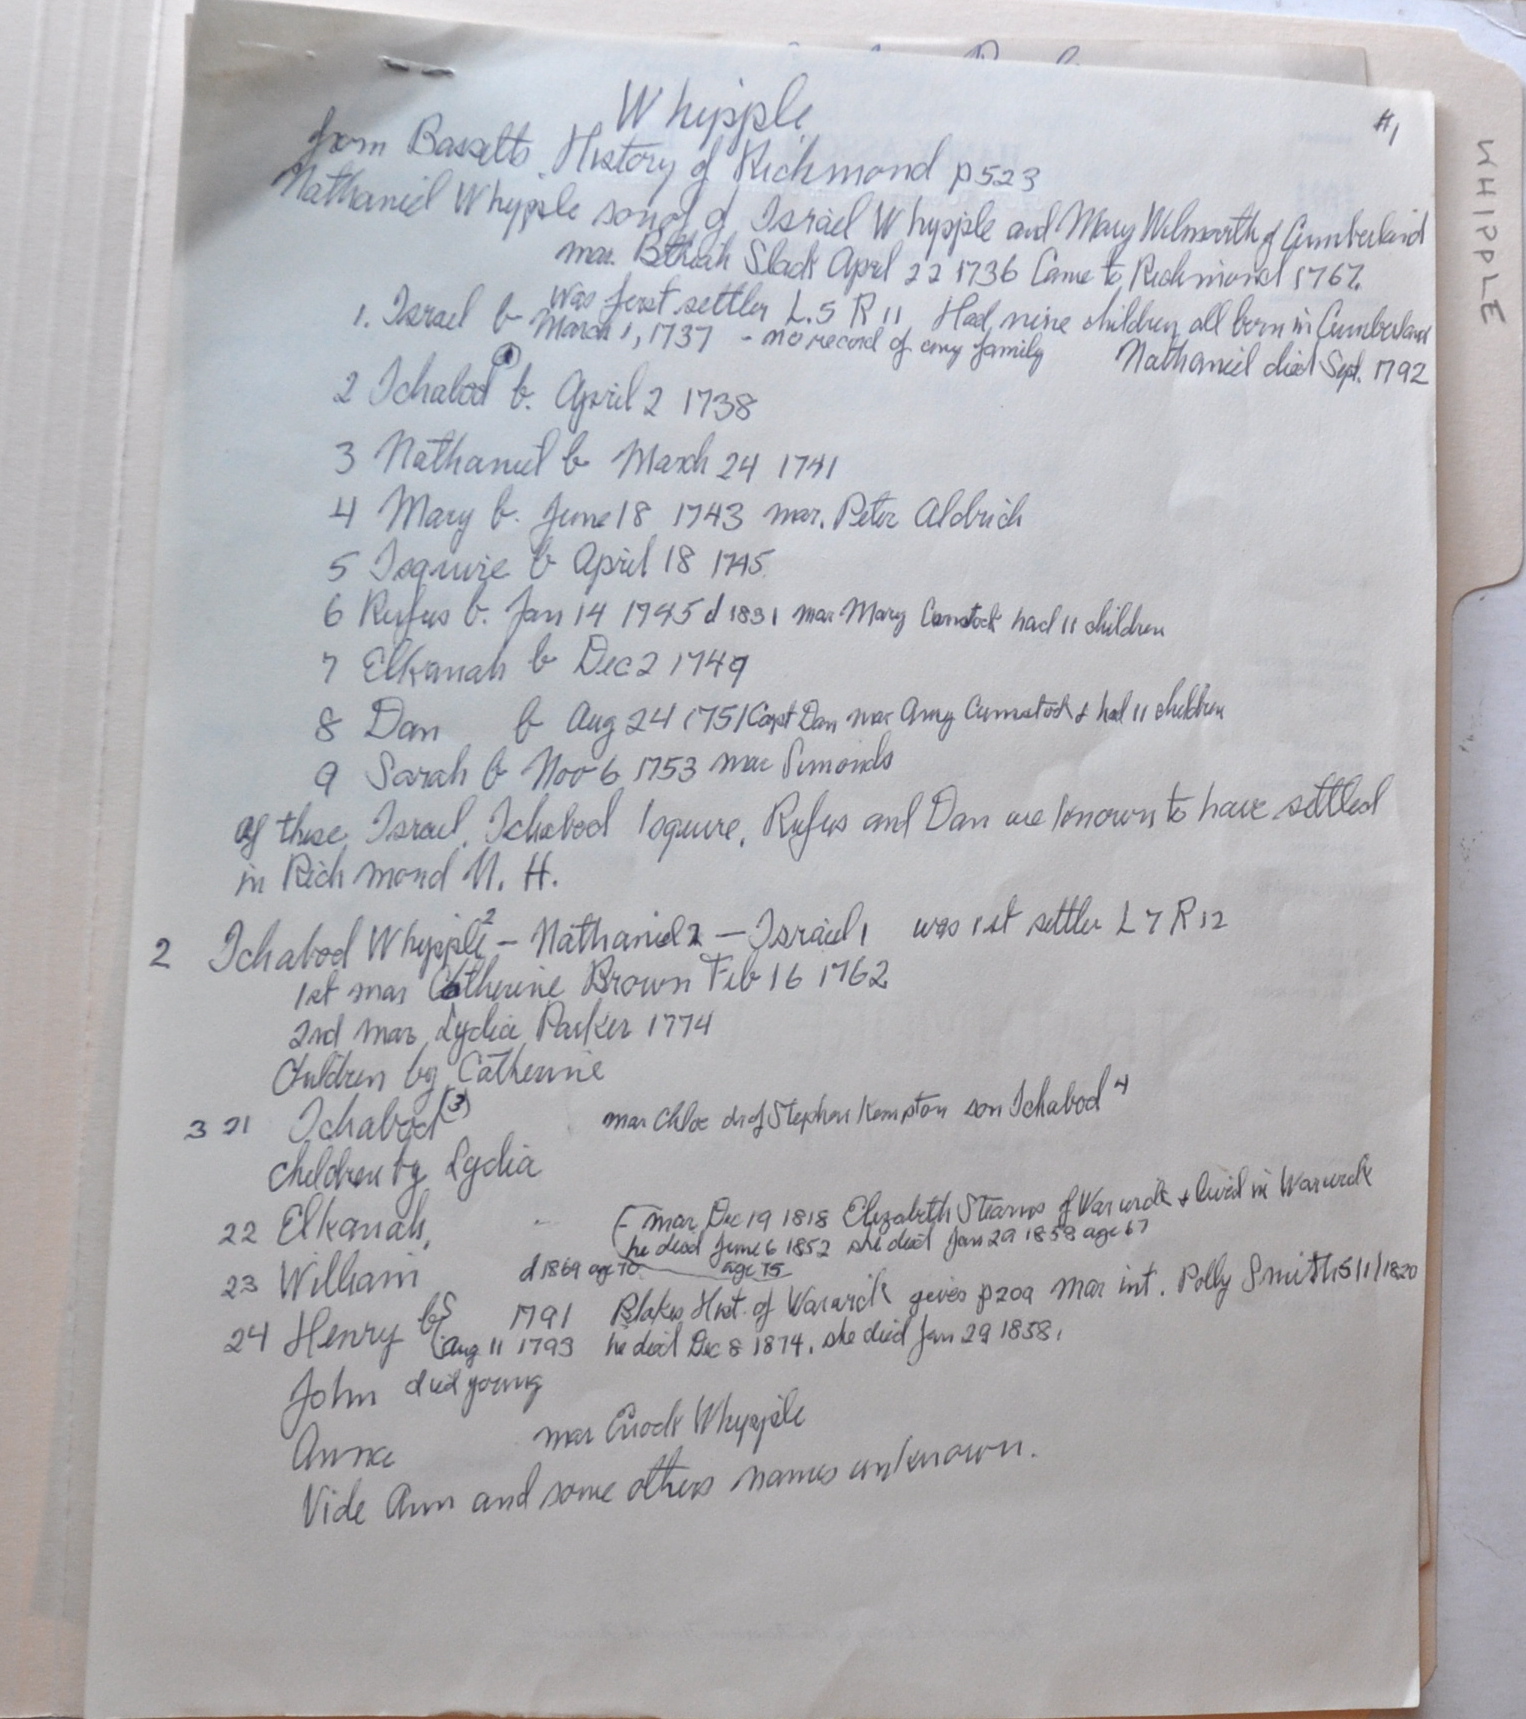 Whipple
#1
from Bassetts History of Richmond p523
Nathaniel Whipple son of Israel Whipple and Mary Wilmarth of Cumberland
mar. Bethiah Slack April 22 1736 Came to Richmond 1767.
was first settler L.5 R 11 Had nine children all born in Cumberland
1. Israel b March 1, 1737 - no record of any family Nathaniel died Sept. 1792
2 Ichabod b. April 2 1738
3 Nathaniel b March 24 1741
4 Mary b. June 18 1743 mar. Peter Aldrich
5 Isquire b April 18 1745
6 Rufus b. Jan 14 1745 d 1831 mar Mary Comstock had 11 children
7 Elkanah b Dec 2 1749
8 Dan b Aug 24 1751 Capt Dan mar Amy Cumstock & had 11 children
9 Sarah b Nov 6 1753 mar Simonds
Of these, Israel, Ichabod Isquire, Rufus and Dan are known to have settled
in Richmond N. H.
2 Ichabod Whipple 2 - Nathaniel 2 - Israel 1 was 1st settler L 7 R 12
1st mar Catherine Brown Feb 16 1762
2nd mar Lydia Parker 1774
Children by Catherine
3 21 Ichabod (3) mar Chloe d of Stephen Kempton son Ichabod 4
children by Lydia
22 Elkanah, - mar Dec 19 1818 Elizabeth Stearns of Warwick & lived in Warwick
he died June 6 1852 she died Jan 29 1858 age 67
23 William d 1869 age 70 age 75
24 Henry b 1791 Blakes Hist. of Warwick gives p209 mar int. Polly Smith 5/11/1820
Aug 11 1793 he died Dec 8 1874, she died Jan 29 1858.
John died young
Anna mar Enock Whipple
Vide Ann and some others names unknown.
WHIPPLE